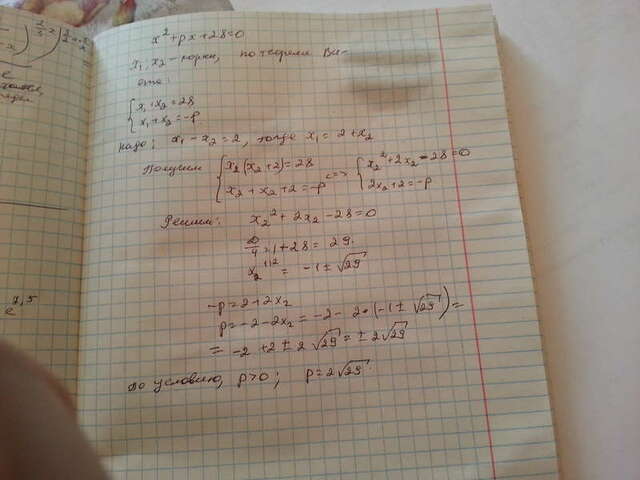 x² + px + 28 = 0
x₁, x₂ - корни, по теореме Ви-
ета:
{ x₁ · x₂ = 28
x₁ + x₂ = -p
надо: x₁ - x₂ = 2, тогда x₁ = 2 + x₂
Получим { x₂(x₂+2) = 28 <=> { x₂² + 2x₂ - 28 = 0
x₂ + x₂ + 2 = -p 2x₂ + 2 = -p
Решим: x₂² + 2x₂ - 28 = 0
D/4 = 1 + 28 = 29.
x₂ ¹'² = -1 ± √29
-p = 2 + 2x₂
p = -2 - 2x₂ = -2 - 2·(-1 ± √29) =
= -2 + 2 ± 2√29 = ± 2√29
По условию, p > 0; p = 2√29.
7,5
e